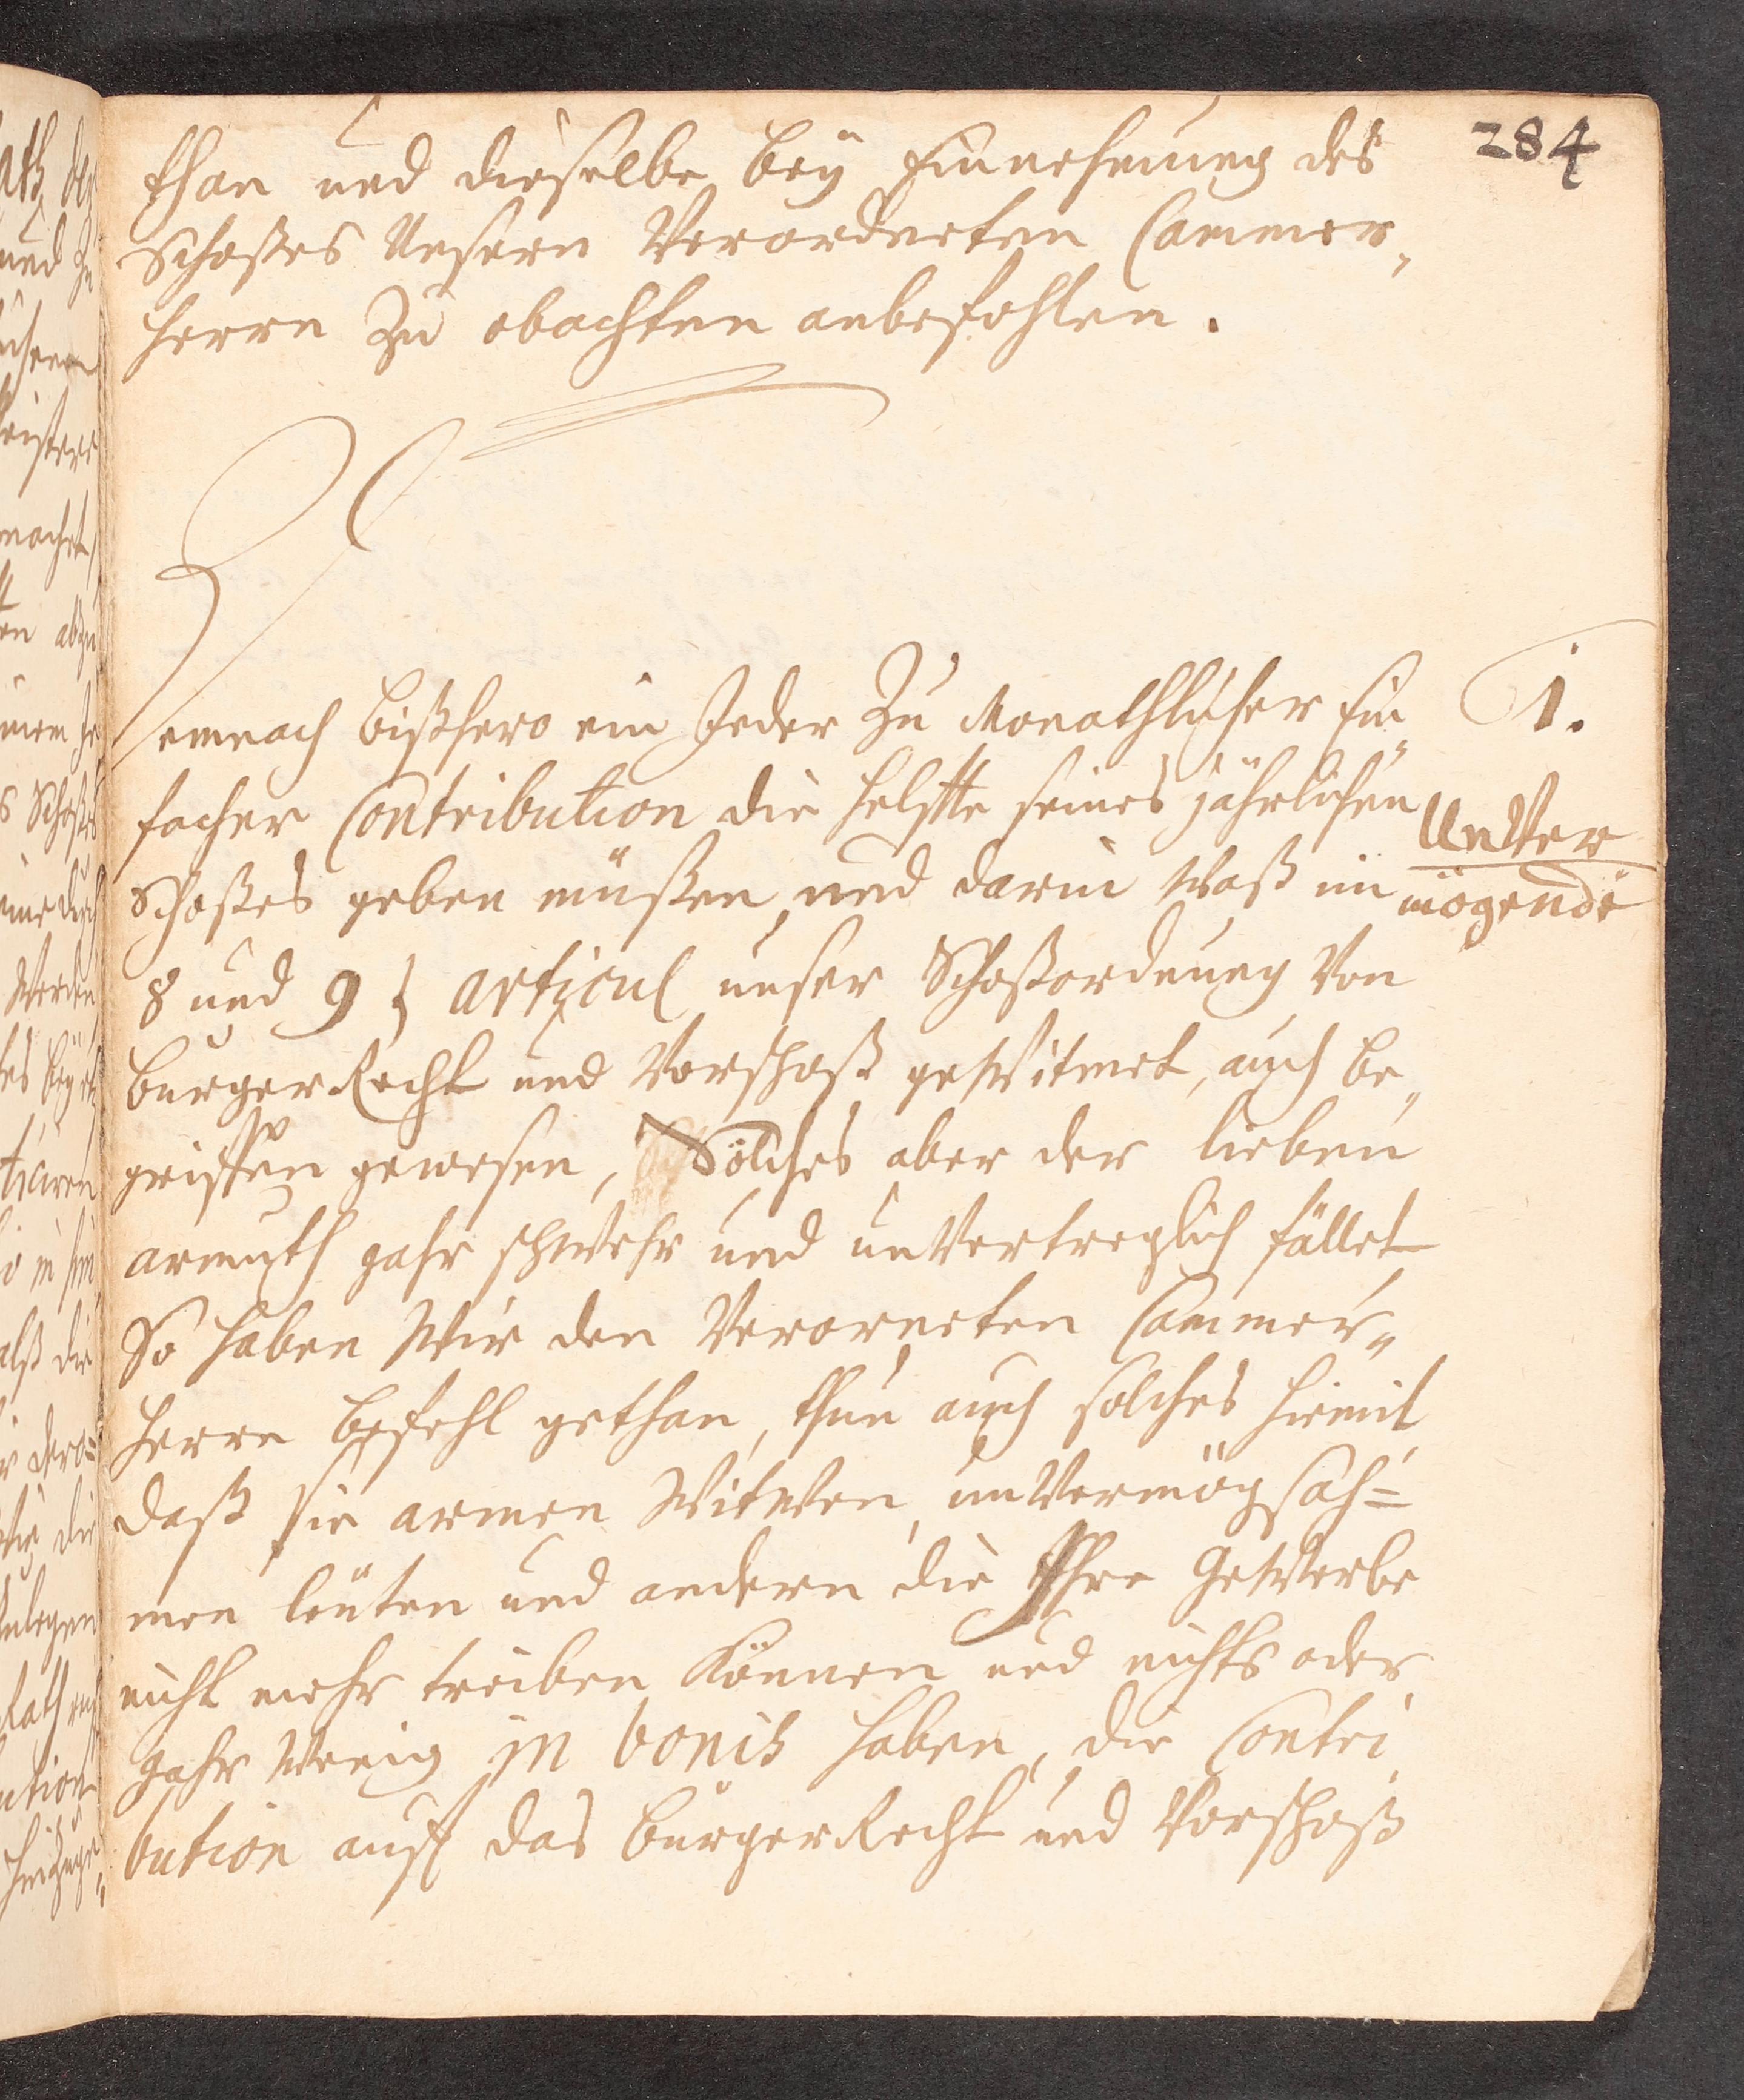 284
than und dieselbe beÿ Einnehmung des
Schoßes Unsern Verordneten Cammer„
herrn Zu obachten anbefohlen.
1.
Demnach bißhero ein Jeder Zu Monathlicher Ein„
facher Contribution die helffte seines jährlichen
UnVer
Schoßes geben müßen, und darin Waß im
mögende
8 und 9 t articul unser Schoßordnung Von
burger Recht und Vorschoß geWitmet, auch be„
griffen gewesen, Solches aber der lieben
armuth gahr schwehr und unVertreglich fället
So haben Wir den Verorneten Cammer„
herrn befehl gethan, thun auch solches hiemit
daß sie armen WitWen, unVermögsah=
men leuten und andern die Ihre GeWerbe
nicht mehr treiben Können und nichts oder
gahr Wenig in bonis haben, die Contri„
bution auff das bürger Recht und Vorschoß